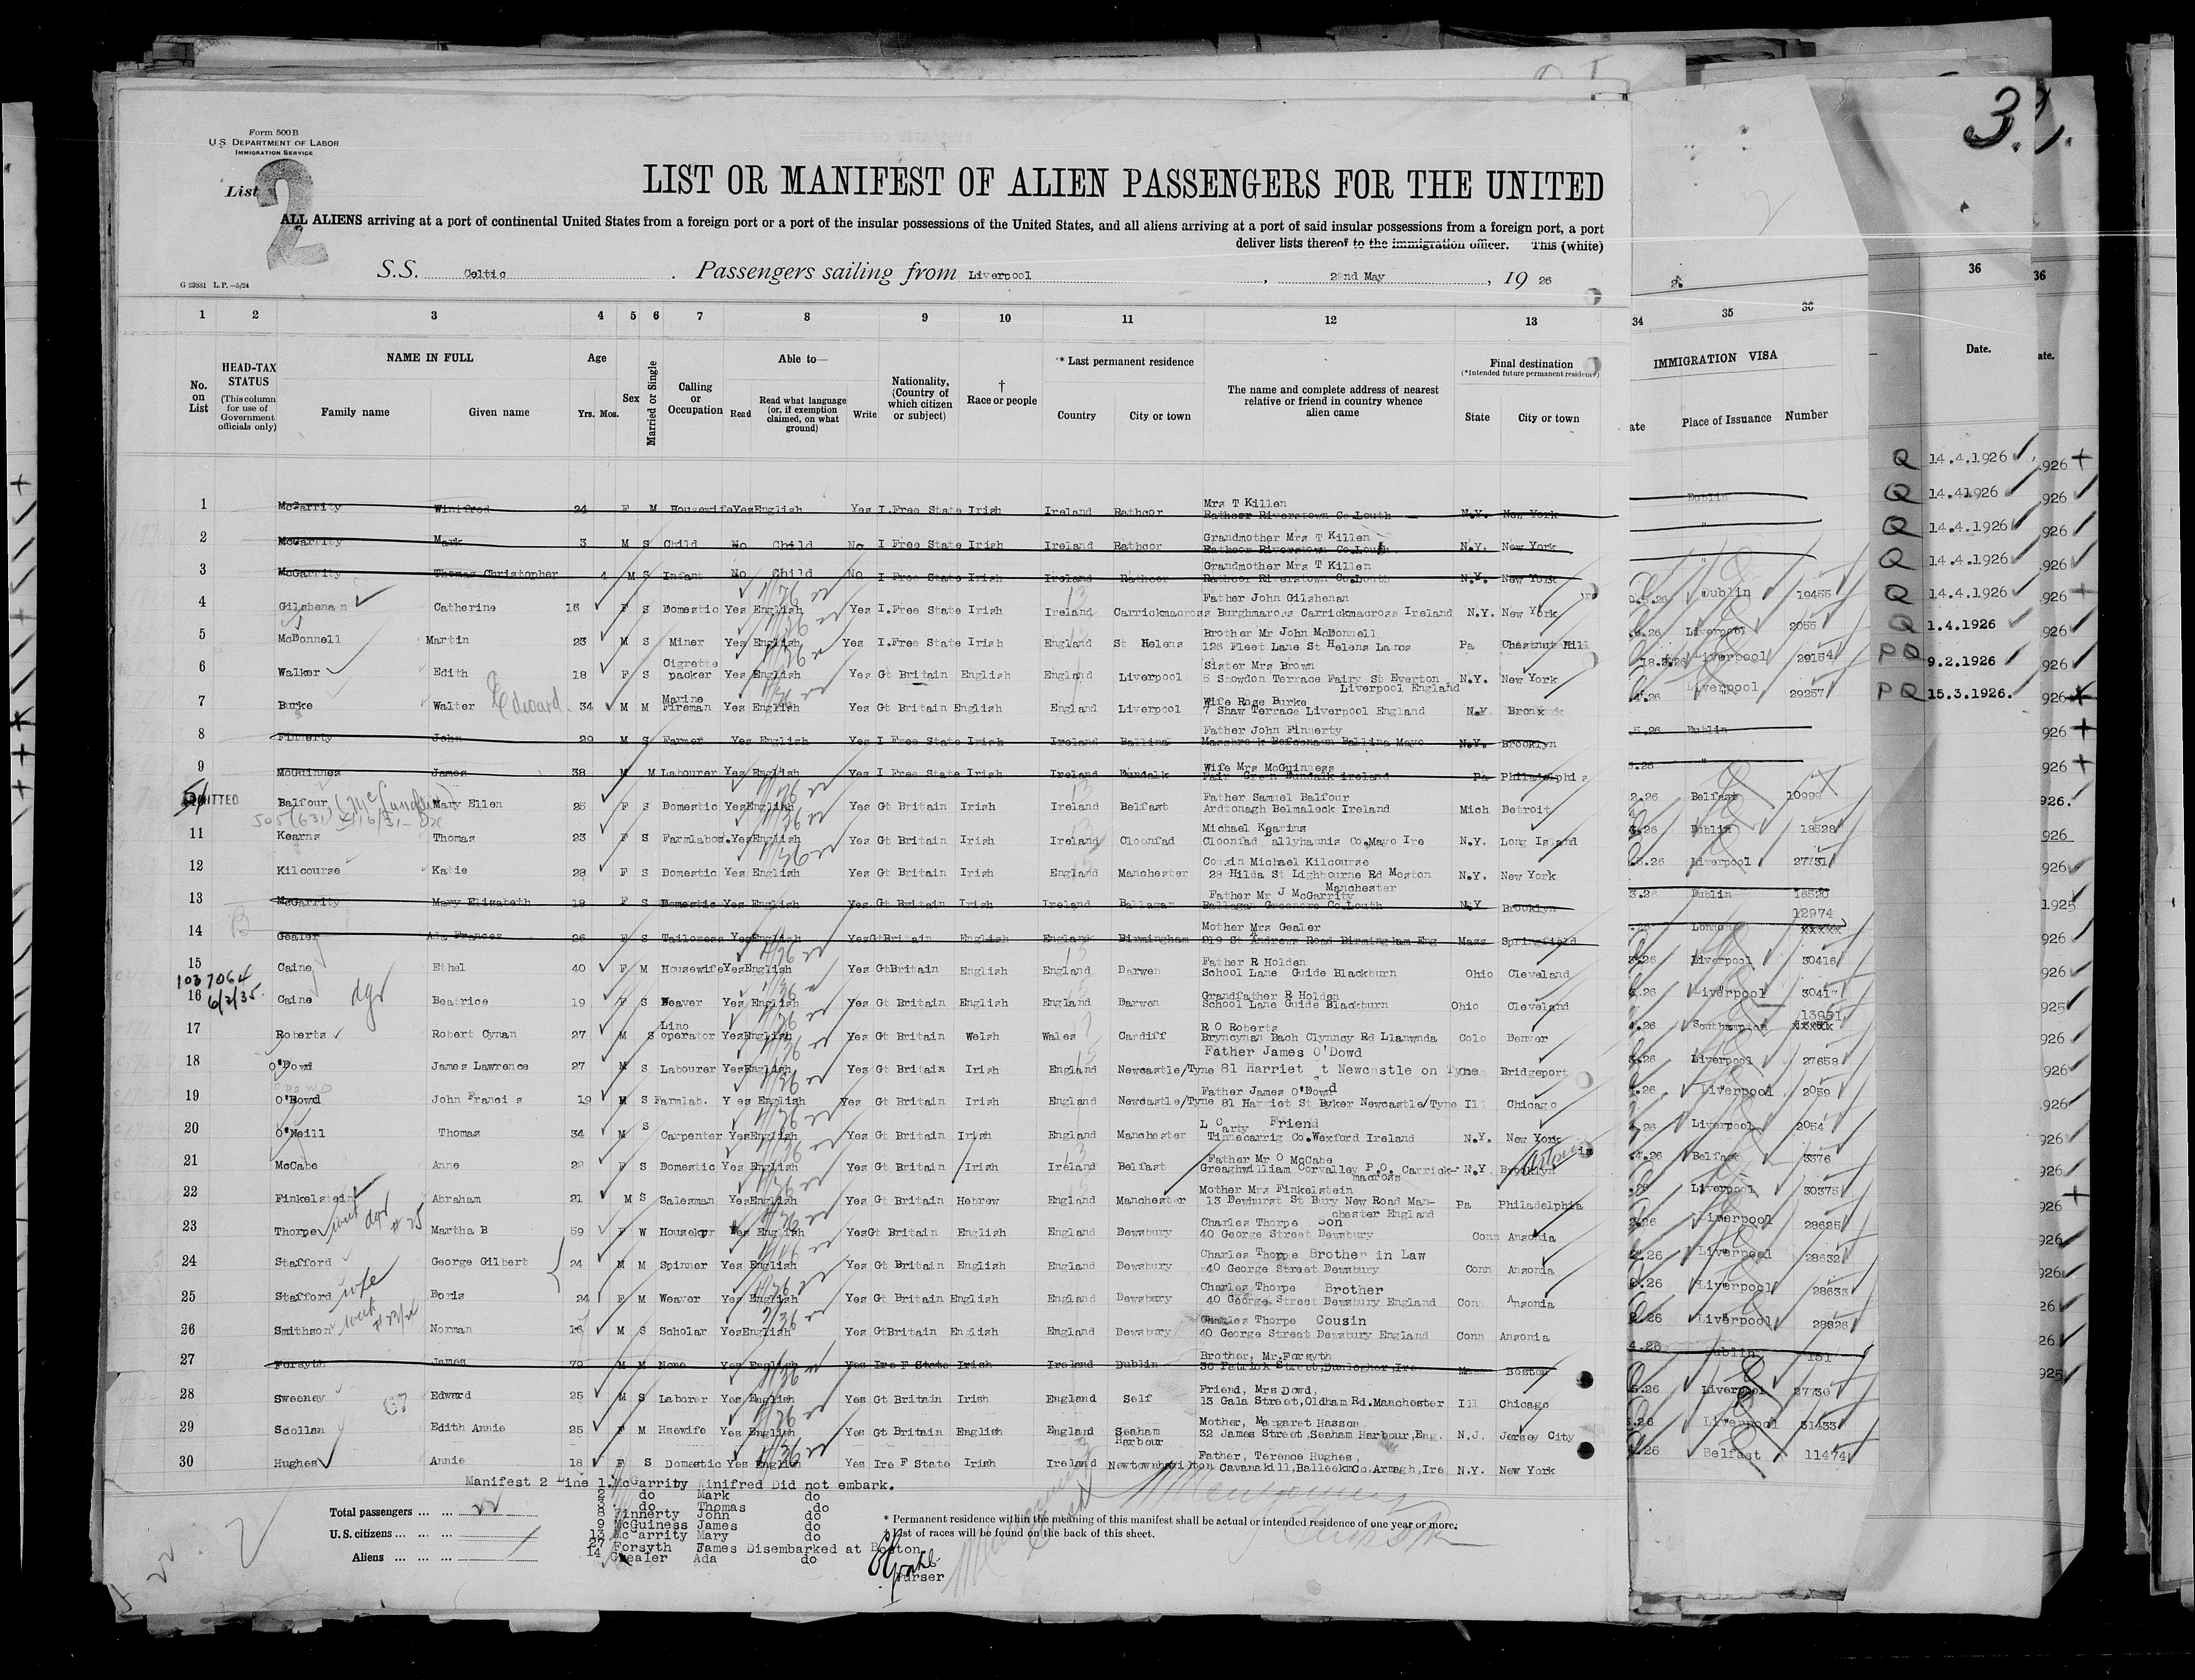 Form 500B
U.S. DEPARTMENT OF LABOR
IMMIGRATION SERVICE
List 2
3.
LIST OR MANIFEST OF ALIEN PASSENGERS FOR THE UNITED
ALL ALIENS arriving at a port of continental United States from a foreign port or a port of the insular possessions of the United States, and all aliens arriving at a port of said insular possessions from a foreign port, a port
deliver lists thereof to the immigration officer. This (white)
S.S. Celtic . Passengers sailing from Liverpool , 22nd May , 19 26
G 23881 L.P.—5/24
1 2 3 4 5 6 7 8 9 10 11 12 13 34 35 36 36 36
No. on List
HEAD-TAX STATUS (This column for use of Government officials only)
NAME IN FULL Family name Given name
Age Yrs. Mos.
Sex
Married or Single
Calling or Occupation
Able to— Read Read what language (or, if exemption claimed, on what ground) Write
Nationality, (Country of which citizen or subject)
† Race or people
* Last permanent residence Country City or town
The name and complete address of nearest relative or friend in country whence alien came
Final destination (*Intended future permanent residence) State City or town
IMMIGRATION VISA ate Place of Issuance Number
Date. ate.
1 McGarrity Winifred 24 F M Housewife Yes English Yes I.Free State Irish Ireland Rathcor Mrs T Killen Rathcor Riverstown Co.Louth N.Y. New York Dublin
2 McGarrity Mark 3 M S Child No Child No I Free State Irish Ireland Rathcor Grandmother Mrs T Killen Rathcor Riverstown Co.Louth N.Y. New York "
3 McGarrity Thomas Christopher 4 M S Infant No Child No I Free State Irish Ireland Rathcor Grandmother Mrs T Killen Rathcor Riverstown Co.Louth N.Y. New York "
4 Gilshenan Catherine 16 F S Domestic Yes English Yes I.Free State Irish Ireland Carrickmacross Father John Gilshenan Burghmaross Carrickmacross Ireland N.Y. New York Dublin 19455
5 McDonnell Martin 23 M S Miner Yes English Yes I.Free State Irish England St Helens Brother Mr John McDonnell 126 Fleet Lane St Helens Lancs Pa Chestnut Hill Liverpool 2055
6 Walker Edith 18 F S Cigrette packer Yes English Yes Gt Britain English England Liverpool Sister Mrs Brown 5 Snowdon Terrace Fairy St Everton Liverpool England N.Y. New York 18.5.26 Liverpool 29154
7 Burke Walter Edward. 34 M M Marine Fireman Yes English Yes Gt Britain English England Liverpool Wife Rose Burke 7 Shaw Terrace Liverpool England N.Y Bronx Liverpool 29257
8 Finnerty John 29 M S Farmer Yes English Yes I Free State Irish Ireland Ballina Father John Finnerty Ballina Mayo N.Y. Brooklyn 5.26 Dublin
9 McGuinnes James 38 M M Labourer Yes English Yes I Free State Irish Ireland Dundalk Wife Mrs McGuinness Fair Green Dundalk ireland Pa Philadelphia "
ADMITTED Balfour Mary Ellen 25 F S Domestic Yes English Yes Gt Britain Irish Ireland Belfast Father Samuel Balfour Ardtonagh Belmaleck Ireland Mich Detroit 2.26 Belfast 10999
11 Kearns Thomas 23 F S Farmlabom. Yes English Yes Gt Britain Irish Ireland Cloonfad Michael Kearins Cloonfad Ballyhaunis Co.Mayo Ire N.Y. Long Island Dublin 18528
12 Kilcourse Katie 28 F S Domestic Yes English Yes Gt Britain Irish England Manchester Cousin Michael Kilcourse 28 Hilda St Lighbourne Rd Moston Manchester N.Y. New York 5.26 Liverpool 27731
13 McGarrity Mary Elizabeth 19 F S Domestic Yes English Yes Gt Britain Irish Ireland Ballagan Father Mr J McGarrity Ballagan Greenore Co.Louth N.Y Brooklyn 3.26 Dublin 16520
14 Gealer Ada Frances 26 F S Tailoress Yes English Yes Gt Britain English England Birmingham Mother Mrs Gealer 219 St Andrews Road Birmingham Eng Mass Springfield London 12974
15 Caine Ethel 40 F M Housewife Yes English Yes GtBritain English England Darwen Father R Holden School Lane Guide Blackburn Ohio Cleveland Liverpool 30416
103 7064 6/2/35.
16 Caine Beatrice 19 F S Weaver Yes English Yes Gt Britain English England Darwen Grandfather R Holden School Lane Guide Blackburn Ohio Cleveland Liverpool 30417
17 Roberts Robert Cynan 27 M S Lino operator Yes English Yes Gt Britain Welsh Wales Cardiff R O Roberts Bryncynan Bach Clynnog Rd Llanwnda Colo Denver Southampton 13951
18 O'Dowd James Lawrence 27 M S Labourer Yes English Yes Gt Britain Irish England Newcastle/Tyne Father James O'Dowd 81 Harriet St Newcastle on Tyne Bridgeport Liverpool 27658
19 O'Dowd John Francis 19 M S Farmlab. Yes English Yes Gt Britain Irish England Newcastle/Tyne Father James O'Dowd 81 Harriet St Byker Newcastle/Tyne Ill Chicago Liverpool 2059
20 O'Neill Thomas 34 M S Carpenter Yes English Yes Gt Britain Irish England Manchester L Carty Friend Tinnecarrig Co.Wexford Ireland N.Y. New York Liverpool 2054
21 McCabe Anne 22 F S Domestic Yes English Yes Gt Britain Irish Ireland Belfast Father Mr O McCabe Greaghwilliam Corvalley P.O. Carrick-macross N.Y. Brooklyn Belfast 3376
22 Finkelstein Abraham 21 M S Salesman Yes English Yes Gt Britain Hebrew England Manchester Mother Mrs Finkelstein 13 Dewhurst St Bury New Road Man-chester England Pa Philadelphia Liverpool 30375
23 Thorpe Martha B 59 F W Housekpr Yes English Yes Gt Britain English England Dewsbury Charles Thorpe Son 40 George Street Dewsbury Conn Ansonia Liverpool 28625
24 Stafford George Gilbert 24 M M Spinner Yes English Yes Gt Britain English England Dewsbury Charles Thorpe Brother in Law 40 George Street Dewsbury Conn Ansonia Liverpool 28632
25 Stafford wife Doris 24 F M Weaver Yes English Yes Gt Britain English England Dewsbury Charles Thorpe Brother 40 George Street Dewsbury England Conn Ansonia Liverpool 28633
26 Smithson Norman 16 M S Scholar Yes English Yes GtBritain English England Dewsbury Charles Thorpe Cousin 40 George Street Dewsbury England Conn Ansonia Liverpool 28626
27 Forsyth James 79 M M None Yes English Yes Ire F State Irish Ireland Dublin Brother, Mr.Forsyth 30 Patrick Street,Dunlogher,Ire Mass Boston 4.26 Dublin 151
28 Sweeney Edward 25 M S Laborer Yes English Yes Gt Britain Irish England Self Friend, Mrs Dowd, 13 Gala Street,Oldham Rd.Manchester Ill Chicago Liverpool 27730
29 Scollan Edith Annie 25 F M Hsewife Yes English Yes Gt Britain English England Seaham Harbour Mother, Margaret Hasson 32 James Street,Seaham Harbour,Eng. N.J. Jersey City Liverpool 31433
30 Hughes Annie 18 F S Domestic Yes English Yes Ire F State Irish Ireland Newtownhamilton Father, Terence Hughes, Cavanakill,Balleekm Co.Armagh,Ire N.Y. New York Belfast 11474
Q 14.4.1926
Q 14.41926
Q 14.4.1926
Q 14.4.1926
Q 14.4.1926
Q 1.4.1926
PQ 9.2.1926
PQ 15.3.1926.
Manifest 2 Line 1.McGarrity Winifred Did not embark.
2 do Mark do
3 do Thomas do
8 Finnerty John do
9 McGuiness James do
13 McCarrity Mary do
27 Forsyth James Disembarked at Boston
14 Gealer Ada do
Purser
Total passengers ... ...
U.S. citizens ... ...
Aliens ... ... ...
* Permanent residence within the meaning of this manifest shall be actual or intended residence of one year or more.
† List of races will be found on the back of this sheet.